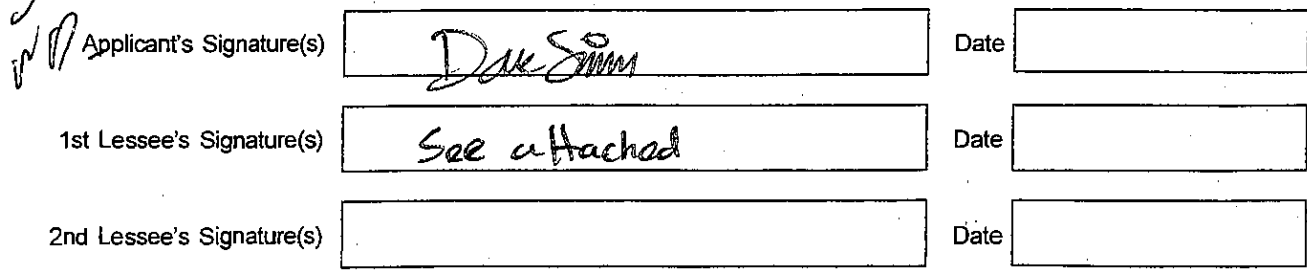 Applicant's Signature(s) Dave Simm Date
1st Lessee's Signature(s) See attached Date
2nd Lessee's Signature(s) Date